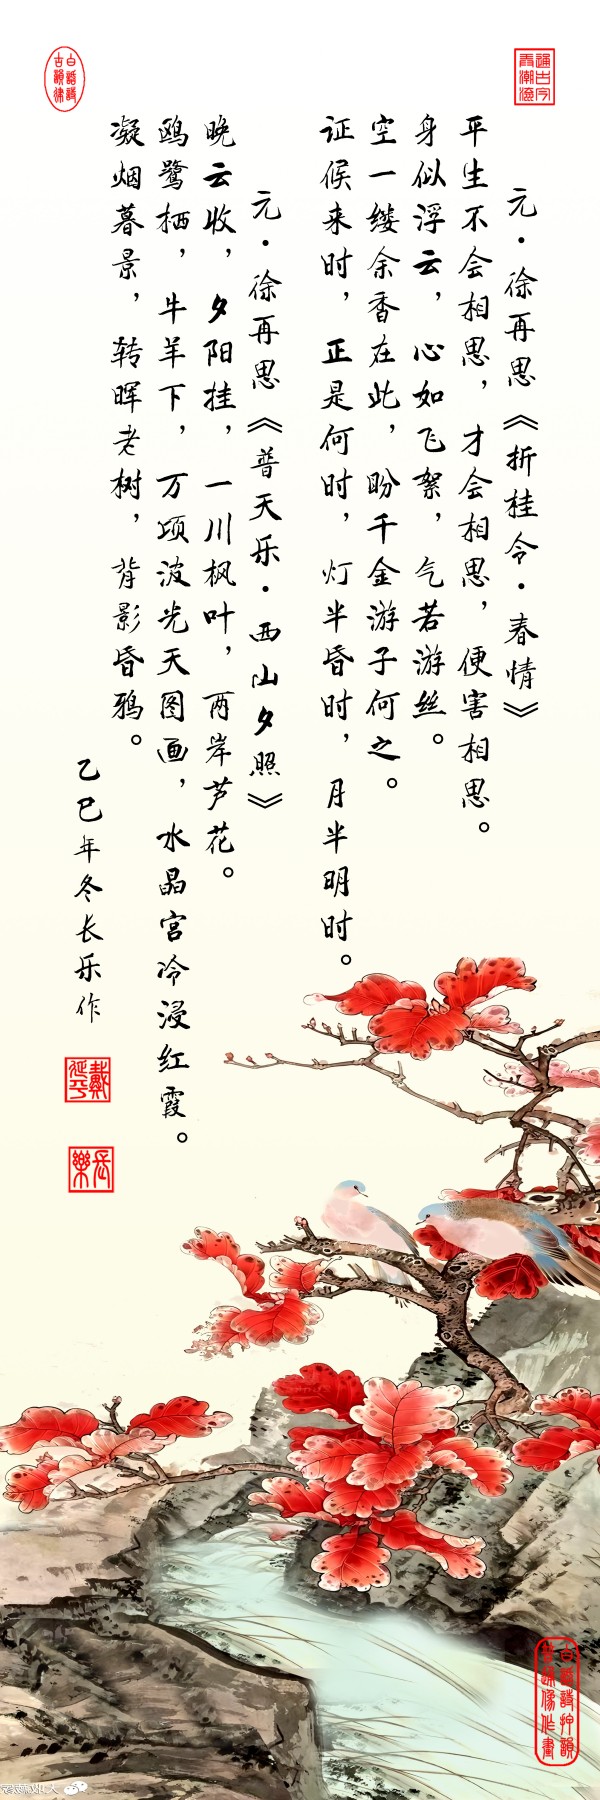 元·徐再思《折桂令·春情》
平生不会相思，才会相思，便害相思。
身似浮云，心如飞絮，气若游丝。
空一缕余香在此，盼千金游子何之。
证候来时，正是何时，灯半昏时，月半明时。
元·徐再思《普天乐·西山夕照》
晚云收，夕阳挂，一川枫叶，两岸芦花。
鸥鹭栖，牛羊下，万顷波光天图画，水晶宫冷浸红霞。
凝烟暮景，转晖老树，背影昏鸦。
乙巳年冬长乐作
白話詩
古韻律
戴
延平
長
樂
白話詩押韻